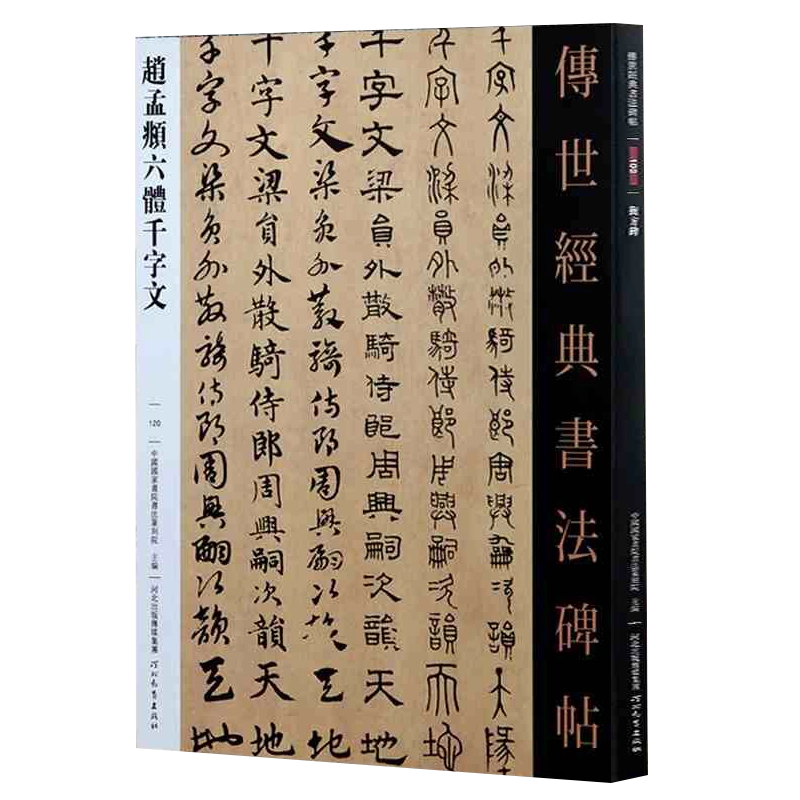 傳世經典書法碑帖
中國國家畫院書法篆刻院 主編
河北出版傳媒集團
傳世經典書法碑帖
千字文梁員外散騎侍郎周興嗣次韻天地
千字文梁員外散騎侍郎周興嗣次韻天地
千字文梁員外散騎侍郎周興嗣次韻天地
千字文梁員外散騎侍郎周興嗣次韻天地
千字文梁員外散騎侍郎周興嗣次韻天地
千字文梁員外散騎侍郎周興嗣次韻天地
趙孟頫六體千字文
120
中國國家畫院書法篆刻院 主編
河北出版傳媒集團
河北教育出版社